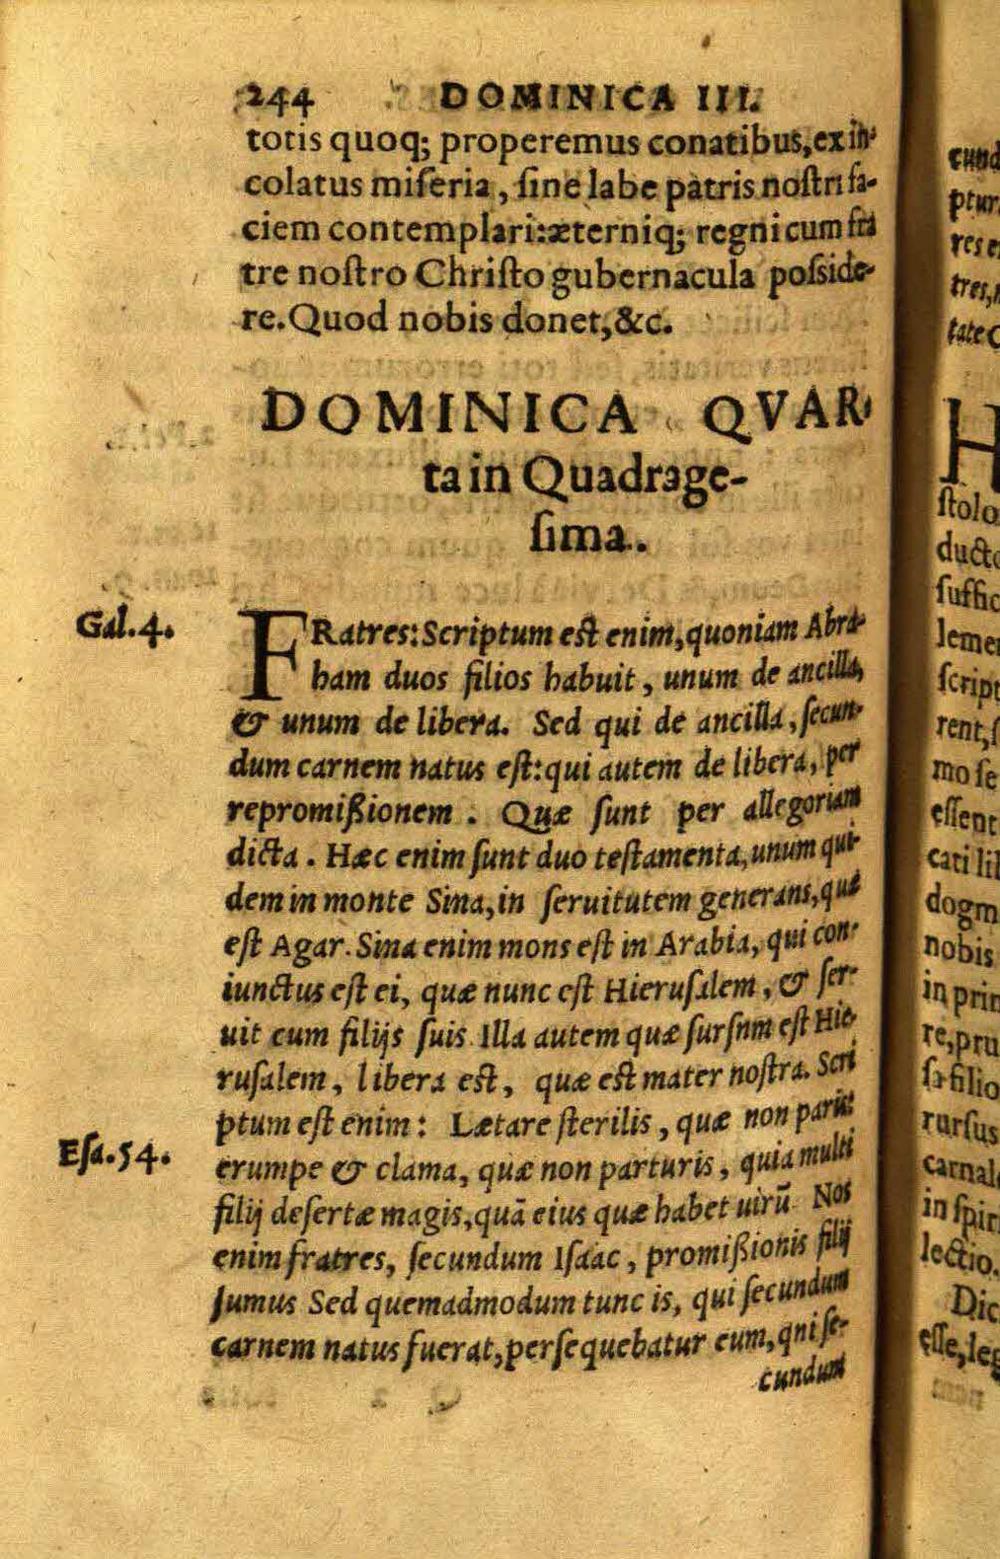 244 DOMINICA III.
totis quoq; properemus conatibus, ex in-
colatus miseria, sine labe patris nostri fa-
ciem contemplari: æterniq; regni cum fra
tre nostro Christo gubernacula posside-
re. Quod nobis donet, &c.
DOMINICA QVAR-
ta in Quadrage-
sima.
Gal. 4.
FRatres: Scriptum est enim, quoniam Abra-
ham duos filios habuit, unum de ancilla,
& unum de libera. Sed qui de ancilla, secun-
dum carnem natus est: qui autem de libera, per
repromißionem. Quæ sunt per allegoriam
dicta. Hæc enim sunt duo testamenta, unum qui-
dem in monte Sina, in seruitutem generans, quæ
est Agar. Sina enim mons est in Arabia, qui con-
iunctus est ei, quæ nunc est Hierusalem, & ser-
uit cum filijs suis. Illa autem quæ sursnm est Hie-
rusalem, libera est, quæ est mater nostra. Scri
ptum est enim: Lætare sterilis, quæ non paris:
Esa. 54.
erumpe & clama, quæ non parturis, quia multi
filij desertæ magis, quã eius quæ habet uirũ. Nos
enim fratres, secundum Isaac, promißionis filij
sumus Sed quemadmodum tunc is, qui secundum
carnem natus fuerat, persequebatur eum, qni se-
cundum
cund
ptur
res e
tres,
tate
H
stolo
ducto
suffic
leme
script
rent,
mo se
essent
cati lil
dogm
nobis
in prin
re, pru
filio
rursus
carnal
in spir
lectio.
Dic
esse, leg